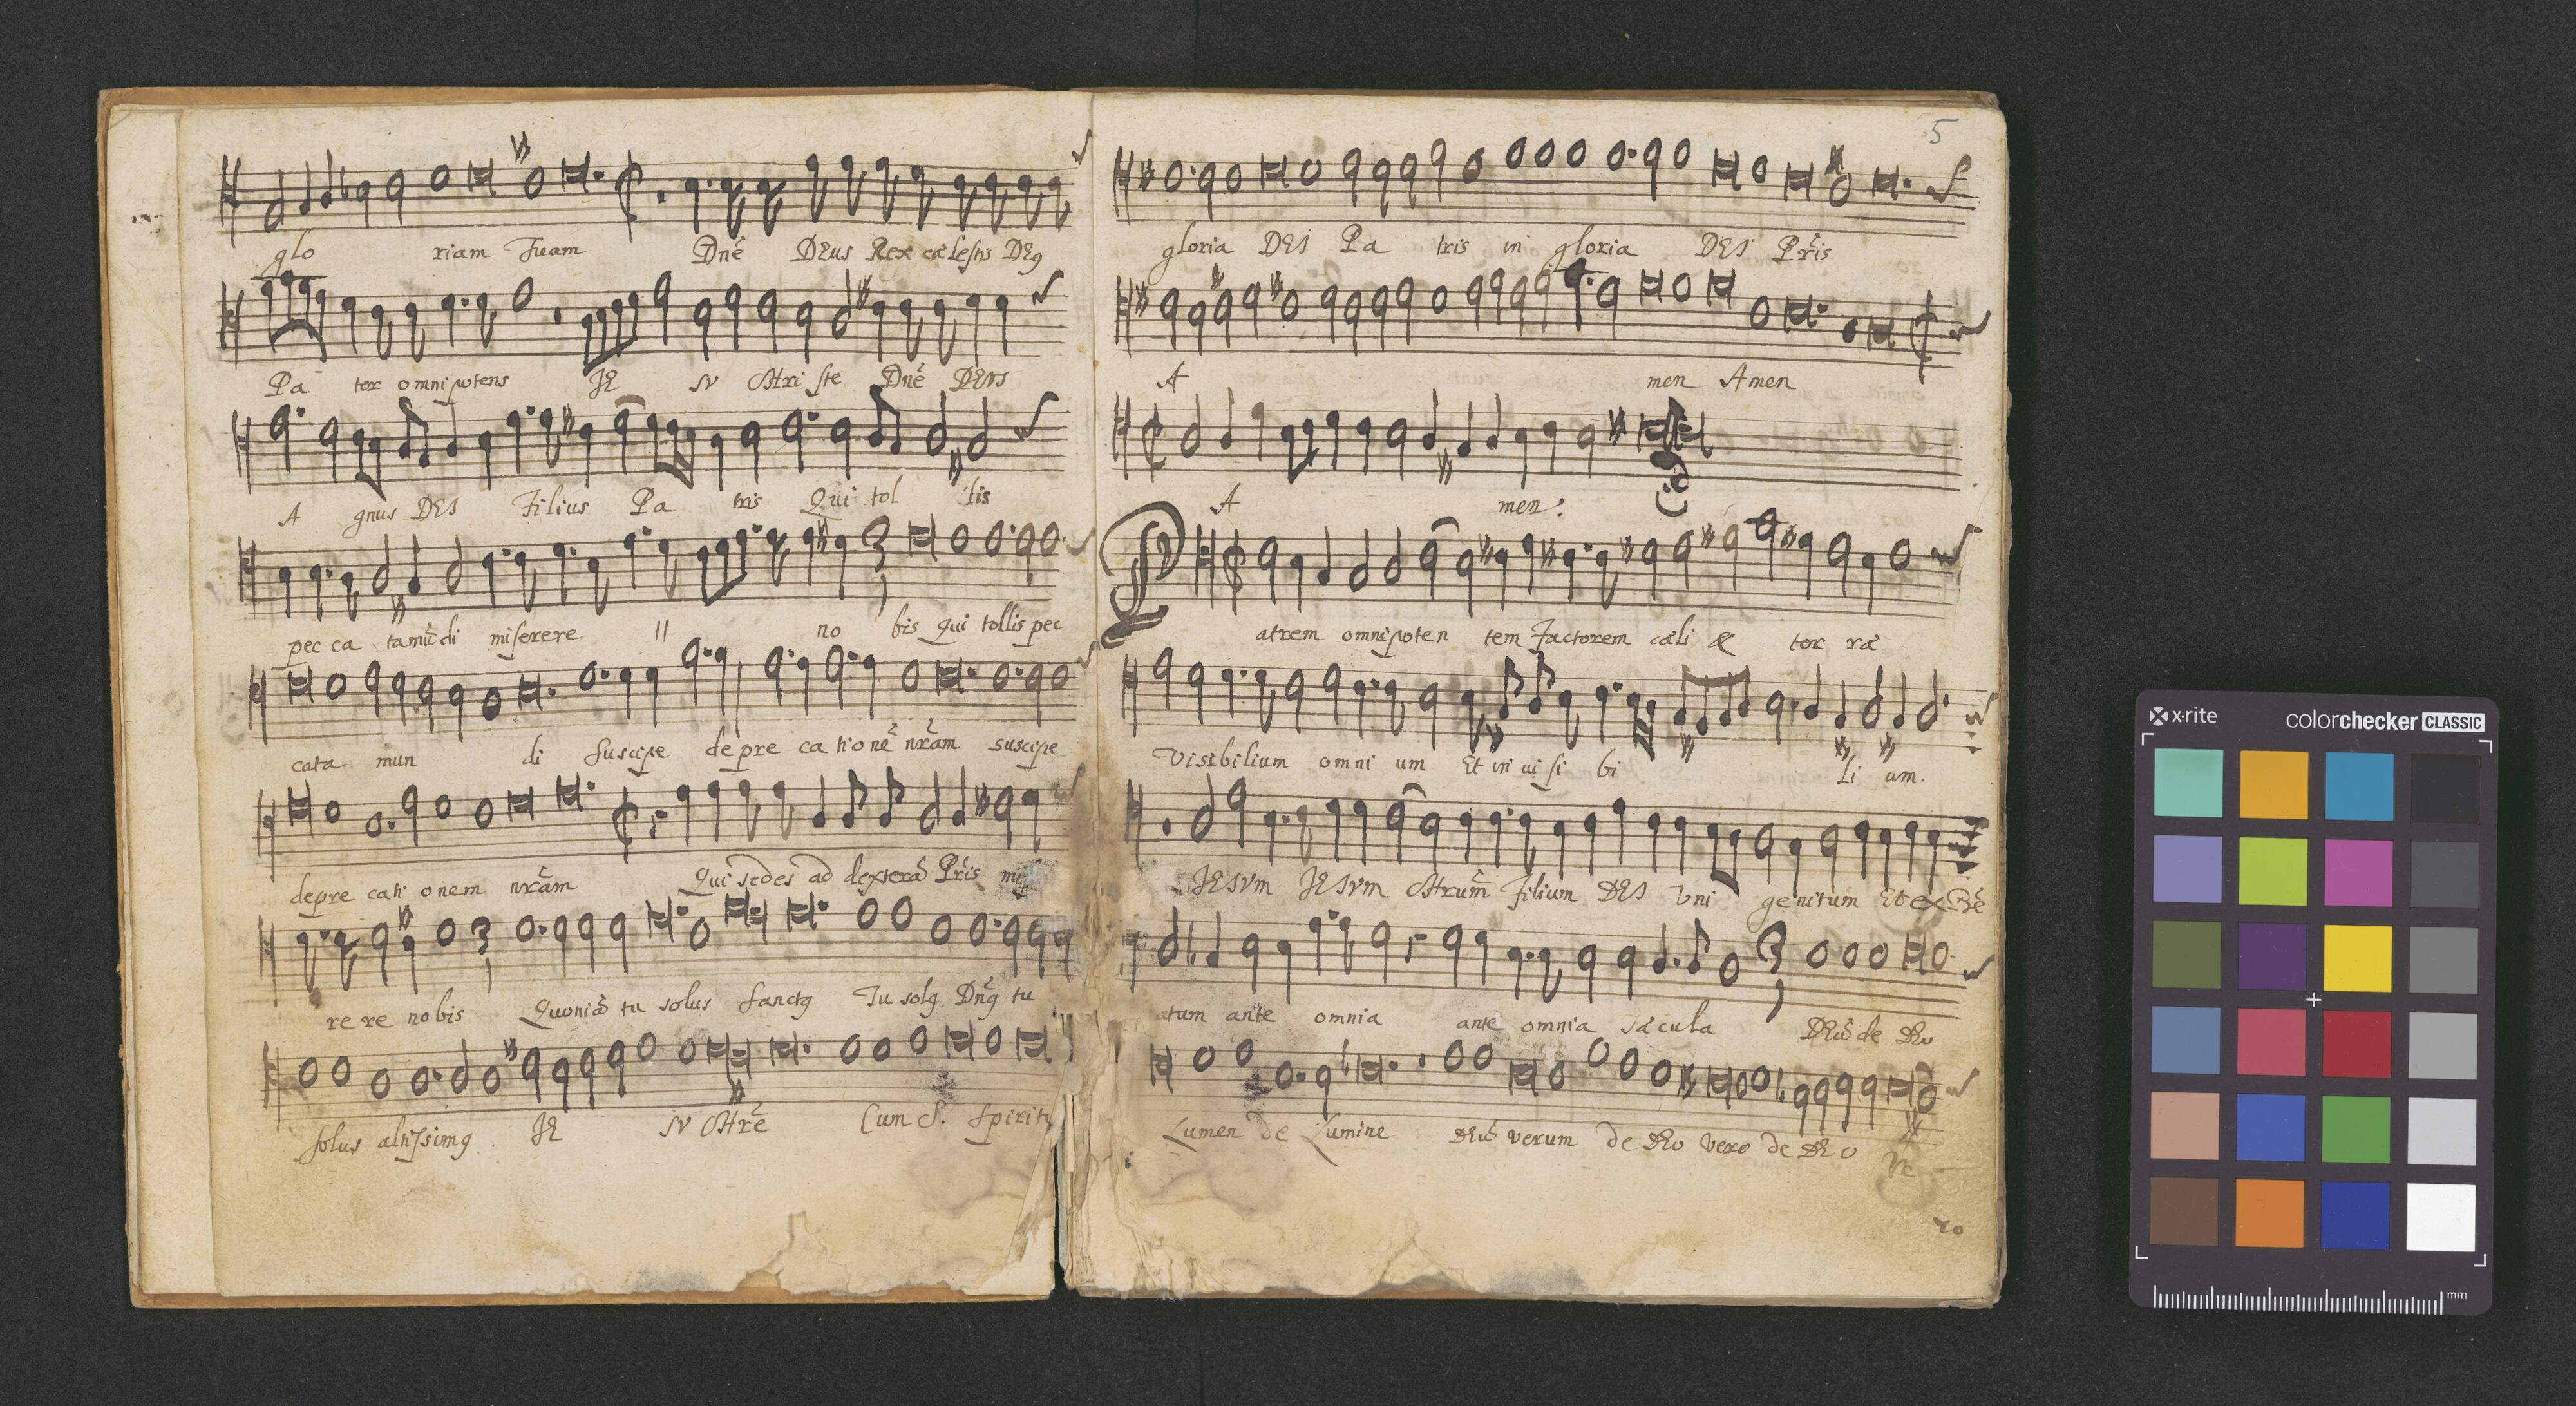 glo riam Tuam Dnẽ DEus Rex cælestis DEg
Pa ter omnipotens JE SV CHri ste Dnẽ DEVS
A gnus DEI Filius Pa tris Qui tol lis
pec ca ta mũ di miserere || no bis qui tollis pec
cata mun di Suscipe de pre ca tionẽ nr̃am suscipe
depre cati onem nr̃am Qui sedes ad dexterã Pr̃is mi
re re nobis Quoniã tu solus Sanctg Tu solg Dñg tu
solus altissimg JE SV CHre Cum S. Spiritu
5
gloria DEI Pa tris in gloria DEI Pr̃is
A men Amen
A men.
Patrem omnipoten tem Factorem cæli & ter ræ
Visibilium omni um Et in ui si bi li um.
JESVM JESVM CHrum̃ Filium DEI Vni genitum Et ex Prẽ
atum ante omnia ante omnia sæcula DEũ de DEo
Lumen de Lumine DEũ verum de DEo vero de DEO Ve
ro
x·rite colorchecker CLASSIC
mm